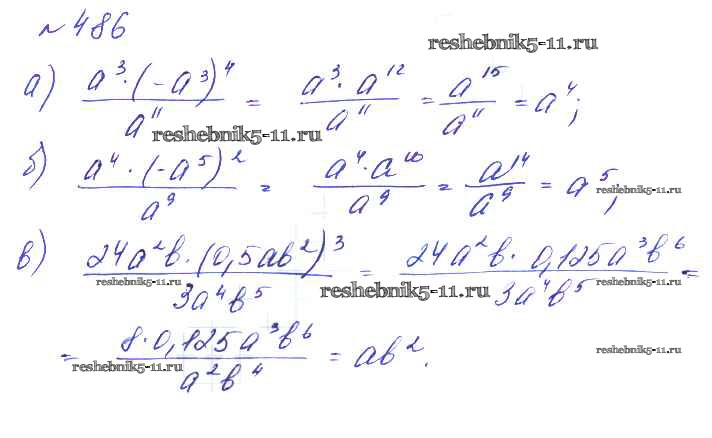 № 486
reshebnik5-11.ru
а) (a³·(-a³)⁴)/a¹¹ = (a³·a¹²)/a¹¹ = a¹⁵/a¹¹ = a⁴;
reshebnik5-11.ru
б) (a⁴·(-a⁵)²)/a⁹ = (a⁴·a¹⁰)/a⁹ = a¹⁴/a⁹ = a⁵;
reshebnik5-11.ru
в) (24a²b·(0,5ab²)³)/(3a⁴b⁵) = (24a²b·0,125a³b⁶)/(3a⁴b⁵) =
reshebnik5-11.ru
reshebnik5-11.ru
= (8·0,125a³b⁶)/(a²b⁴) = ab².
reshebnik5-11.ru
reshebnik5-11.ru